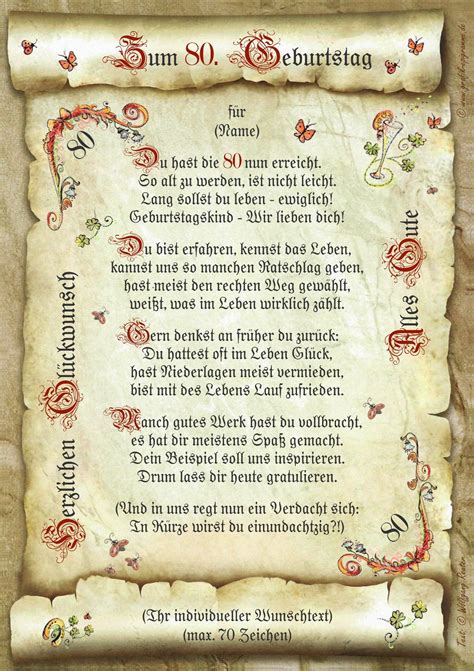 Zum 80. Geburtstag
für
(Name)
80
Du hast die 80 nun erreicht.
So alt zu werden, ist nicht leicht.
Lang sollst du leben - ewiglich!
Geburtstagskind - Wir lieben dich!
Du bist erfahren, kennst das Leben,
kannst uns so manchen Ratschlag geben,
hast meist den rechten Weg gewählt,
weißt, was im Leben wirklich zählt.
Gern denkst an früher du zurück:
Du hattest oft im Leben Glück,
hast Niederlagen meist vermieden,
bist mit des Lebens Lauf zufrieden.
Manch gutes Werk hast du vollbracht,
es hat dir meistens Spaß gemacht.
Dein Beispiel soll uns inspirieren.
Drum lass dir heute gratulieren.
(Und in uns regt nun ein Verdacht sich:
In Kürze wirst du einundachtzig?!)
Herzlichen Glückwunsch
Alles Gute
80
(Ihr individueller Wunschtext)
(max. 70 Zeichen)